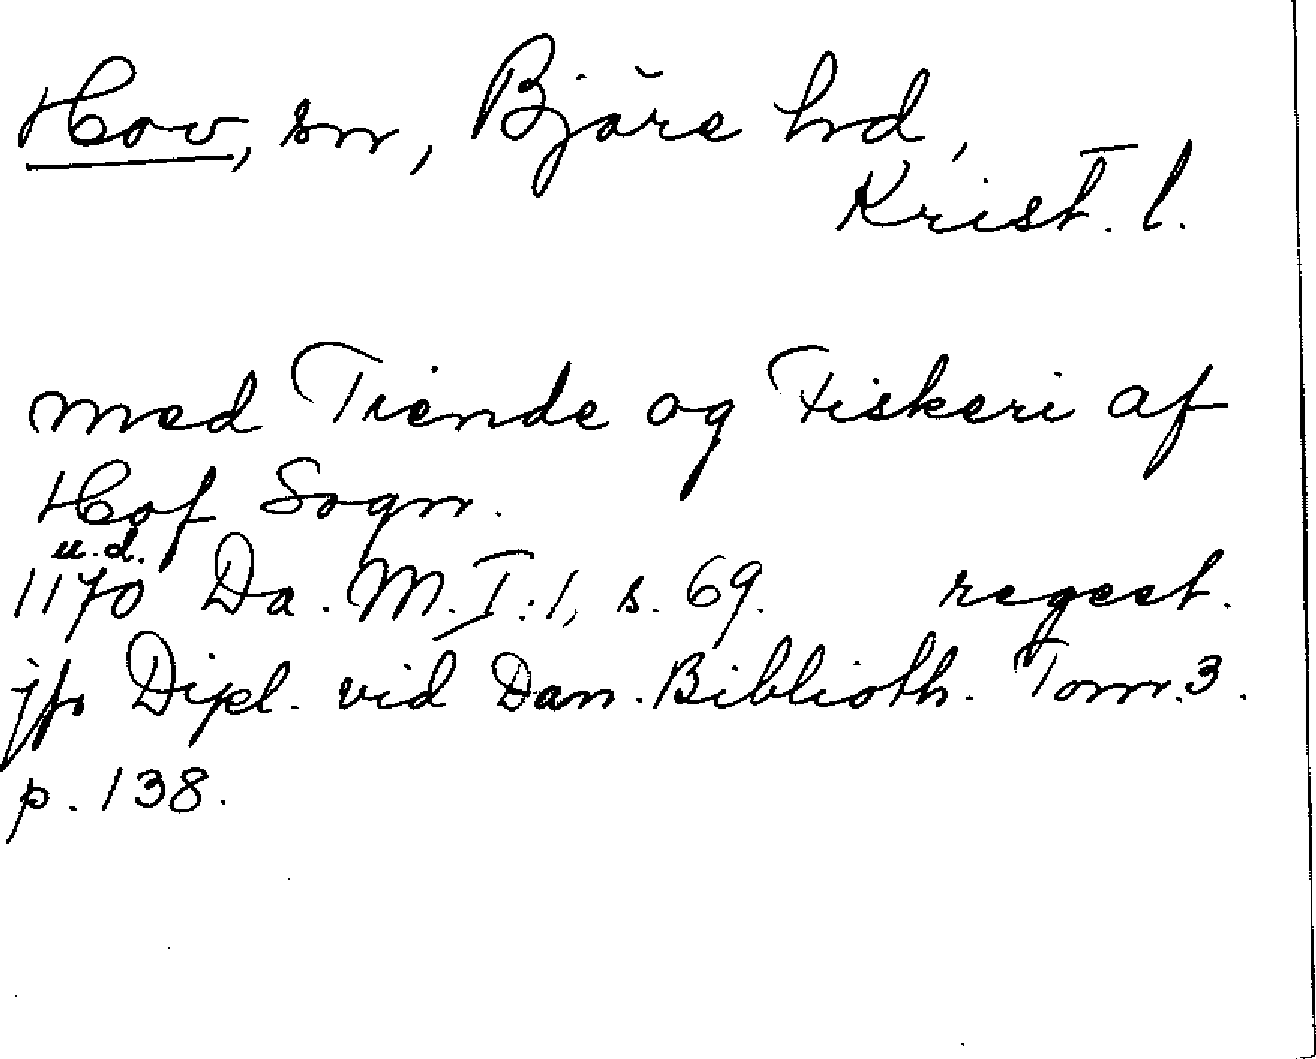 Hov, sn, Bjäre hd,
Krist. l.
med Tiende og Fiskeri af
Hof Sogn.
u.d.
1170 Da. M. I:1, s. 69. regest.
jfr Dipl. vid Dan. Biblioth. Tom. 3.
p. 138.